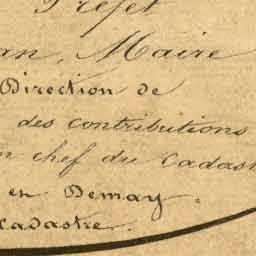 Préfet
an, Maire
Direction de
des contributions
n chef du Cadast
en Demay.
cadastre.